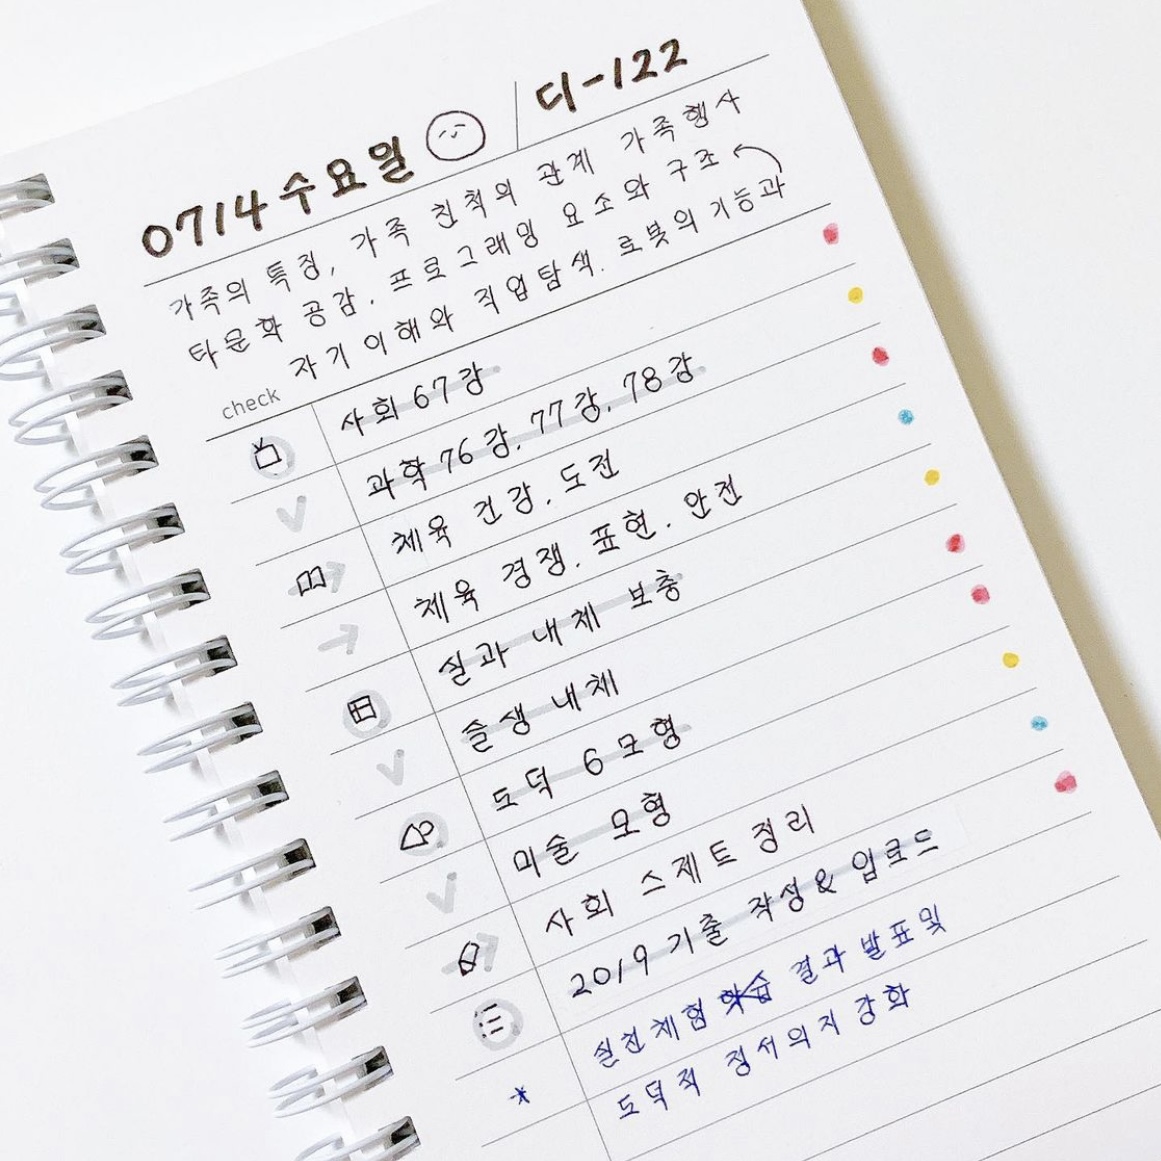 0714 수요일 디-122
가족의 특징, 가족 친척의 관계 가족행사
타문화 공감. 프로그래밍 요소와 구조
자기이해와 직업탐색. 로봇의 기능과
check
사회 67강
과학 76강. 77강. 78강
체육 건강. 도전
체육 경쟁. 표현. 안전
실과 내체 보충
슬생 내체
도덕 6모형
미술 모형
사회 스제트 정리
2019 기출 작성& 업로드
실천체험 학습 결과 발표및
도덕적 정서의지 강화